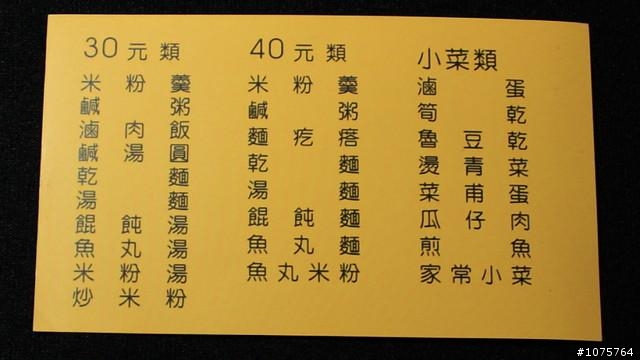 30元類
米粉羹
鹹粥
滷肉飯
鹹湯圓
乾麵
湯麵
餛飩湯
魚丸湯
米粉湯
炒米粉
40元類
米粉羹
鹹粥
麵疙瘩
乾麵
湯麵
餛飩麵
魚丸麵
魚丸米粉
小菜類
滷蛋
筍乾
魯豆乾
燙青菜
菜甫蛋
瓜仔肉
煎魚
家常小菜
#1075764